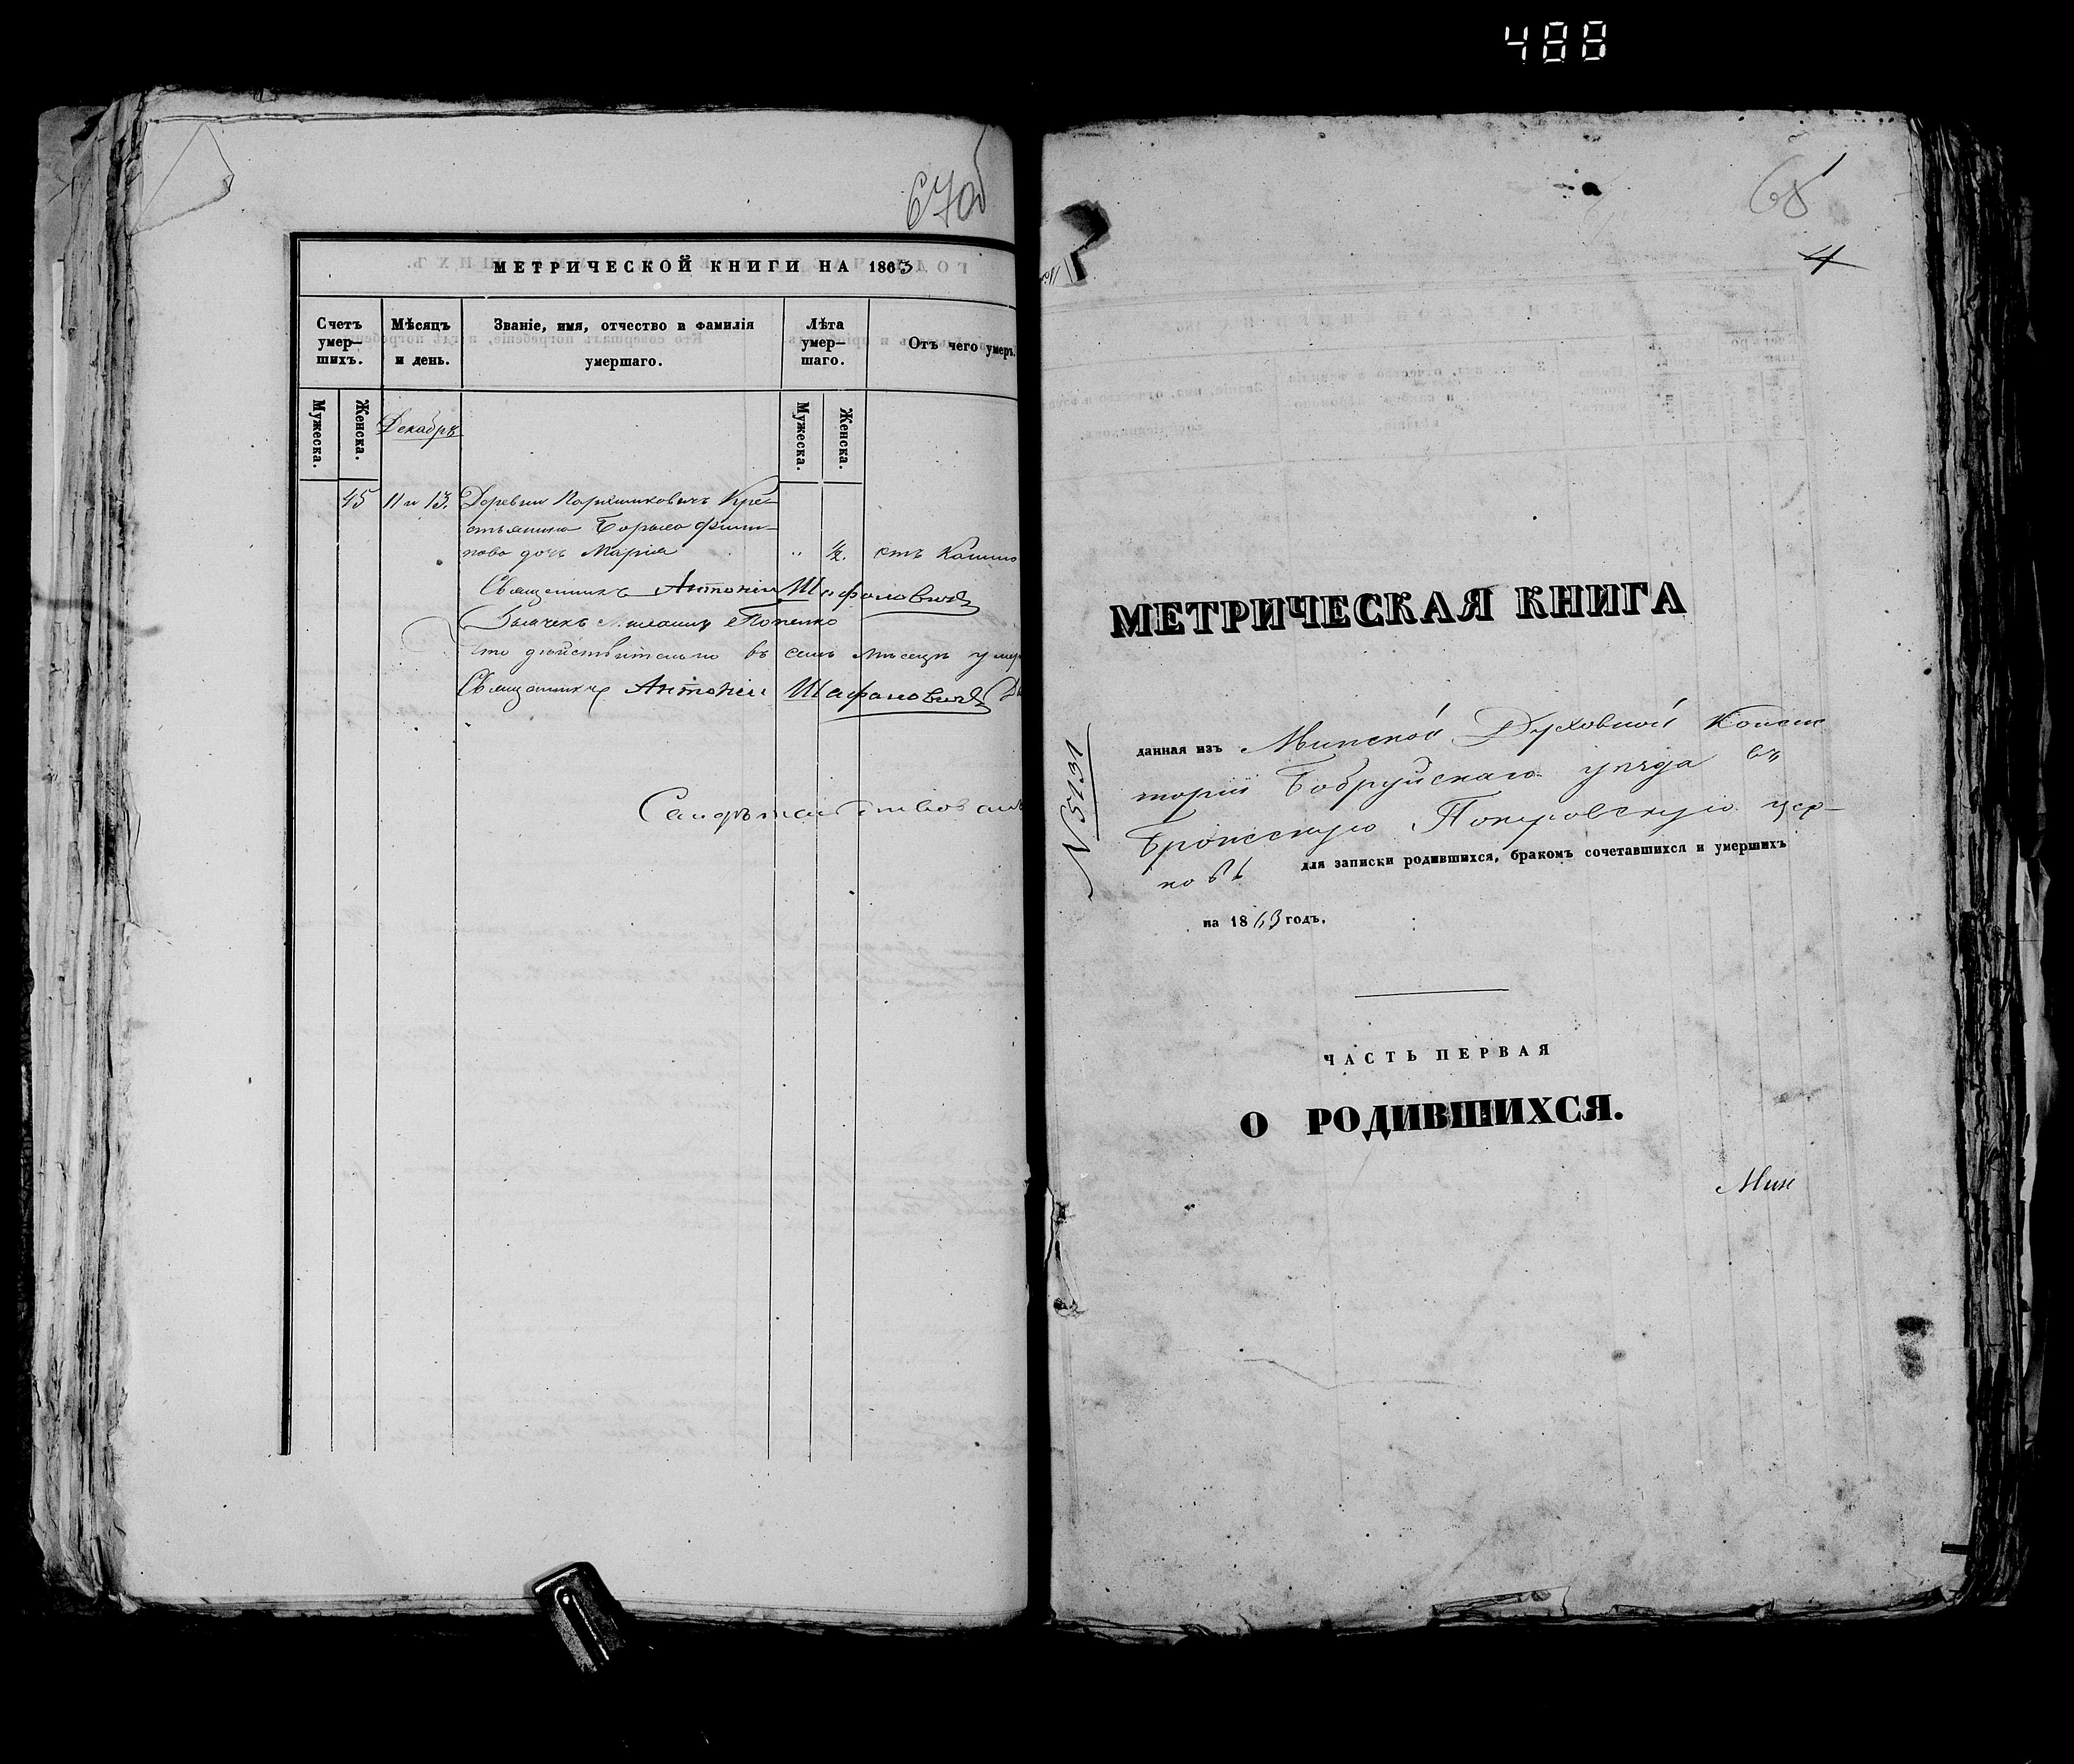 488
67об
МЕТРИЧЕСКОЙ КНИГИ НА 1863
Счетъ умер-шихъ.
Мѣсяцъ и день.
Званіе, имя, отчество и фамилія умершаго.
Лѣта умер-шаго.
Отъ чего умеръ.
Мужеска.
Женска.
Декабрь
Мужеска.
Женска.
45 11 и 13. Деревни Кре-
стьянина Филип-
пова дочь Марія " ½. отъ Кашлю
Священникъ Антоній Шафаловичъ
Попенко
Что дѣйствительно въ семъ мѣсяцѣ умер
Священникъ Антоній Шафаловичъ
68
4
МЕТРИЧЕСКАЯ КНИГА
N 5131
данная изъ Минской Духовной Консис
торіи Бобруйскаго уѣзда въ
Брожскую Покровскую цер-
ковь для записки родившихся, бракомъ сочетавшихся и умершихъ
на 1863 годъ.
ЧАСТЬ ПЕРВАЯ
О РОДИВШИХСЯ.
Мин